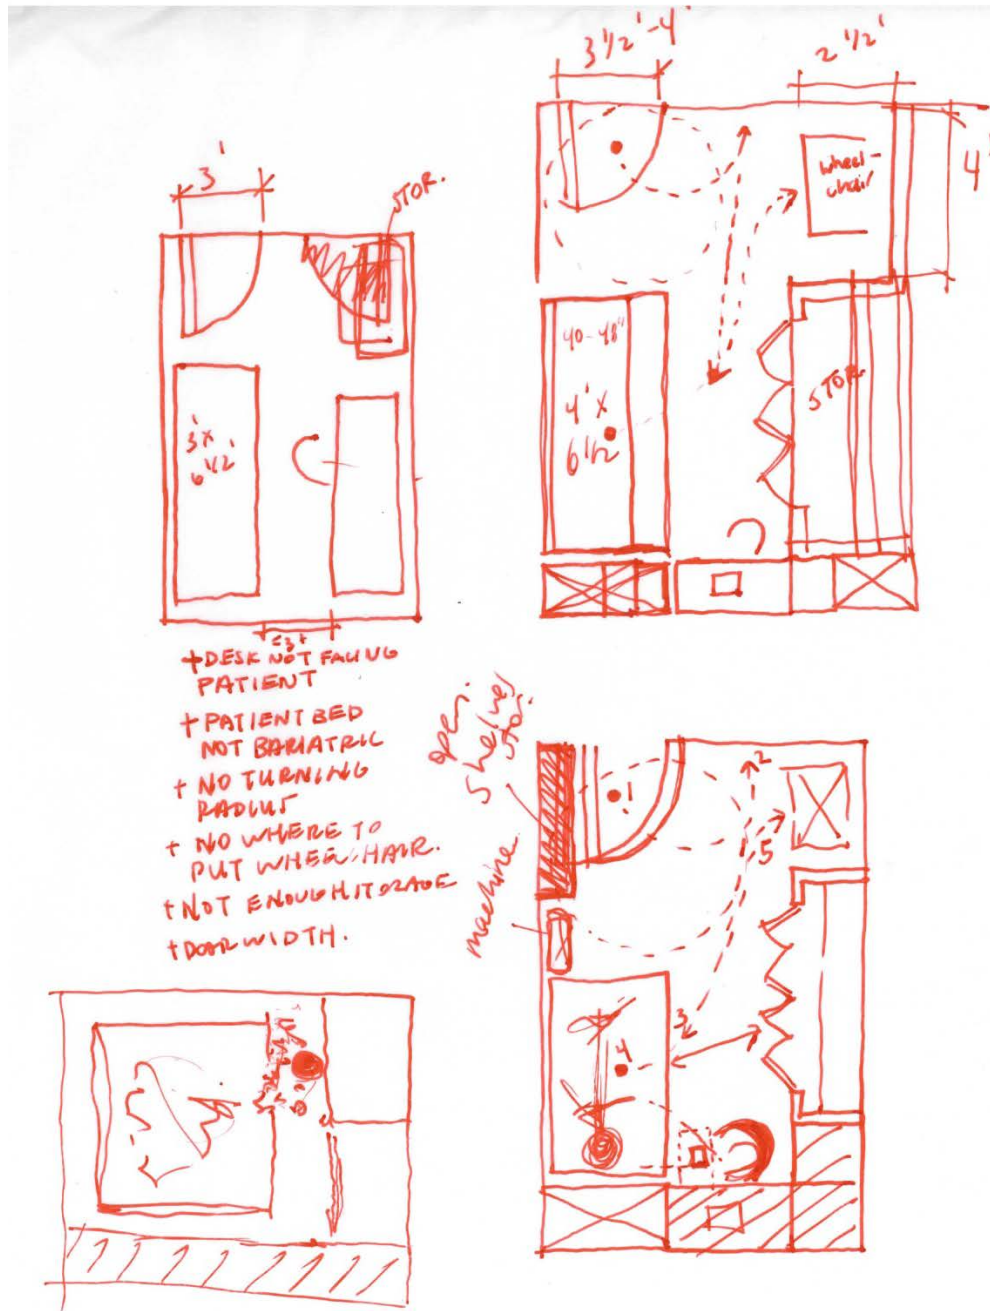 3'
STOR.
3' X
6 1/2'
<3'
+ DESK NOT FACING
PATIENT
+ PATIENT BED
NOT BARIATRIC
+ NO TURNING
RADIUS
+ NO WHERE TO
PUT WHEELCHAIR.
+ NOT ENOUGH STORAGE
+ DOOR WIDTH.
3 1/2' - 4'
2 1/2'
wheel-
chair
4'
40-48"
4' X
6 1/2
STOR.
open
shelves
stor.
machine
1
2
5
3
4